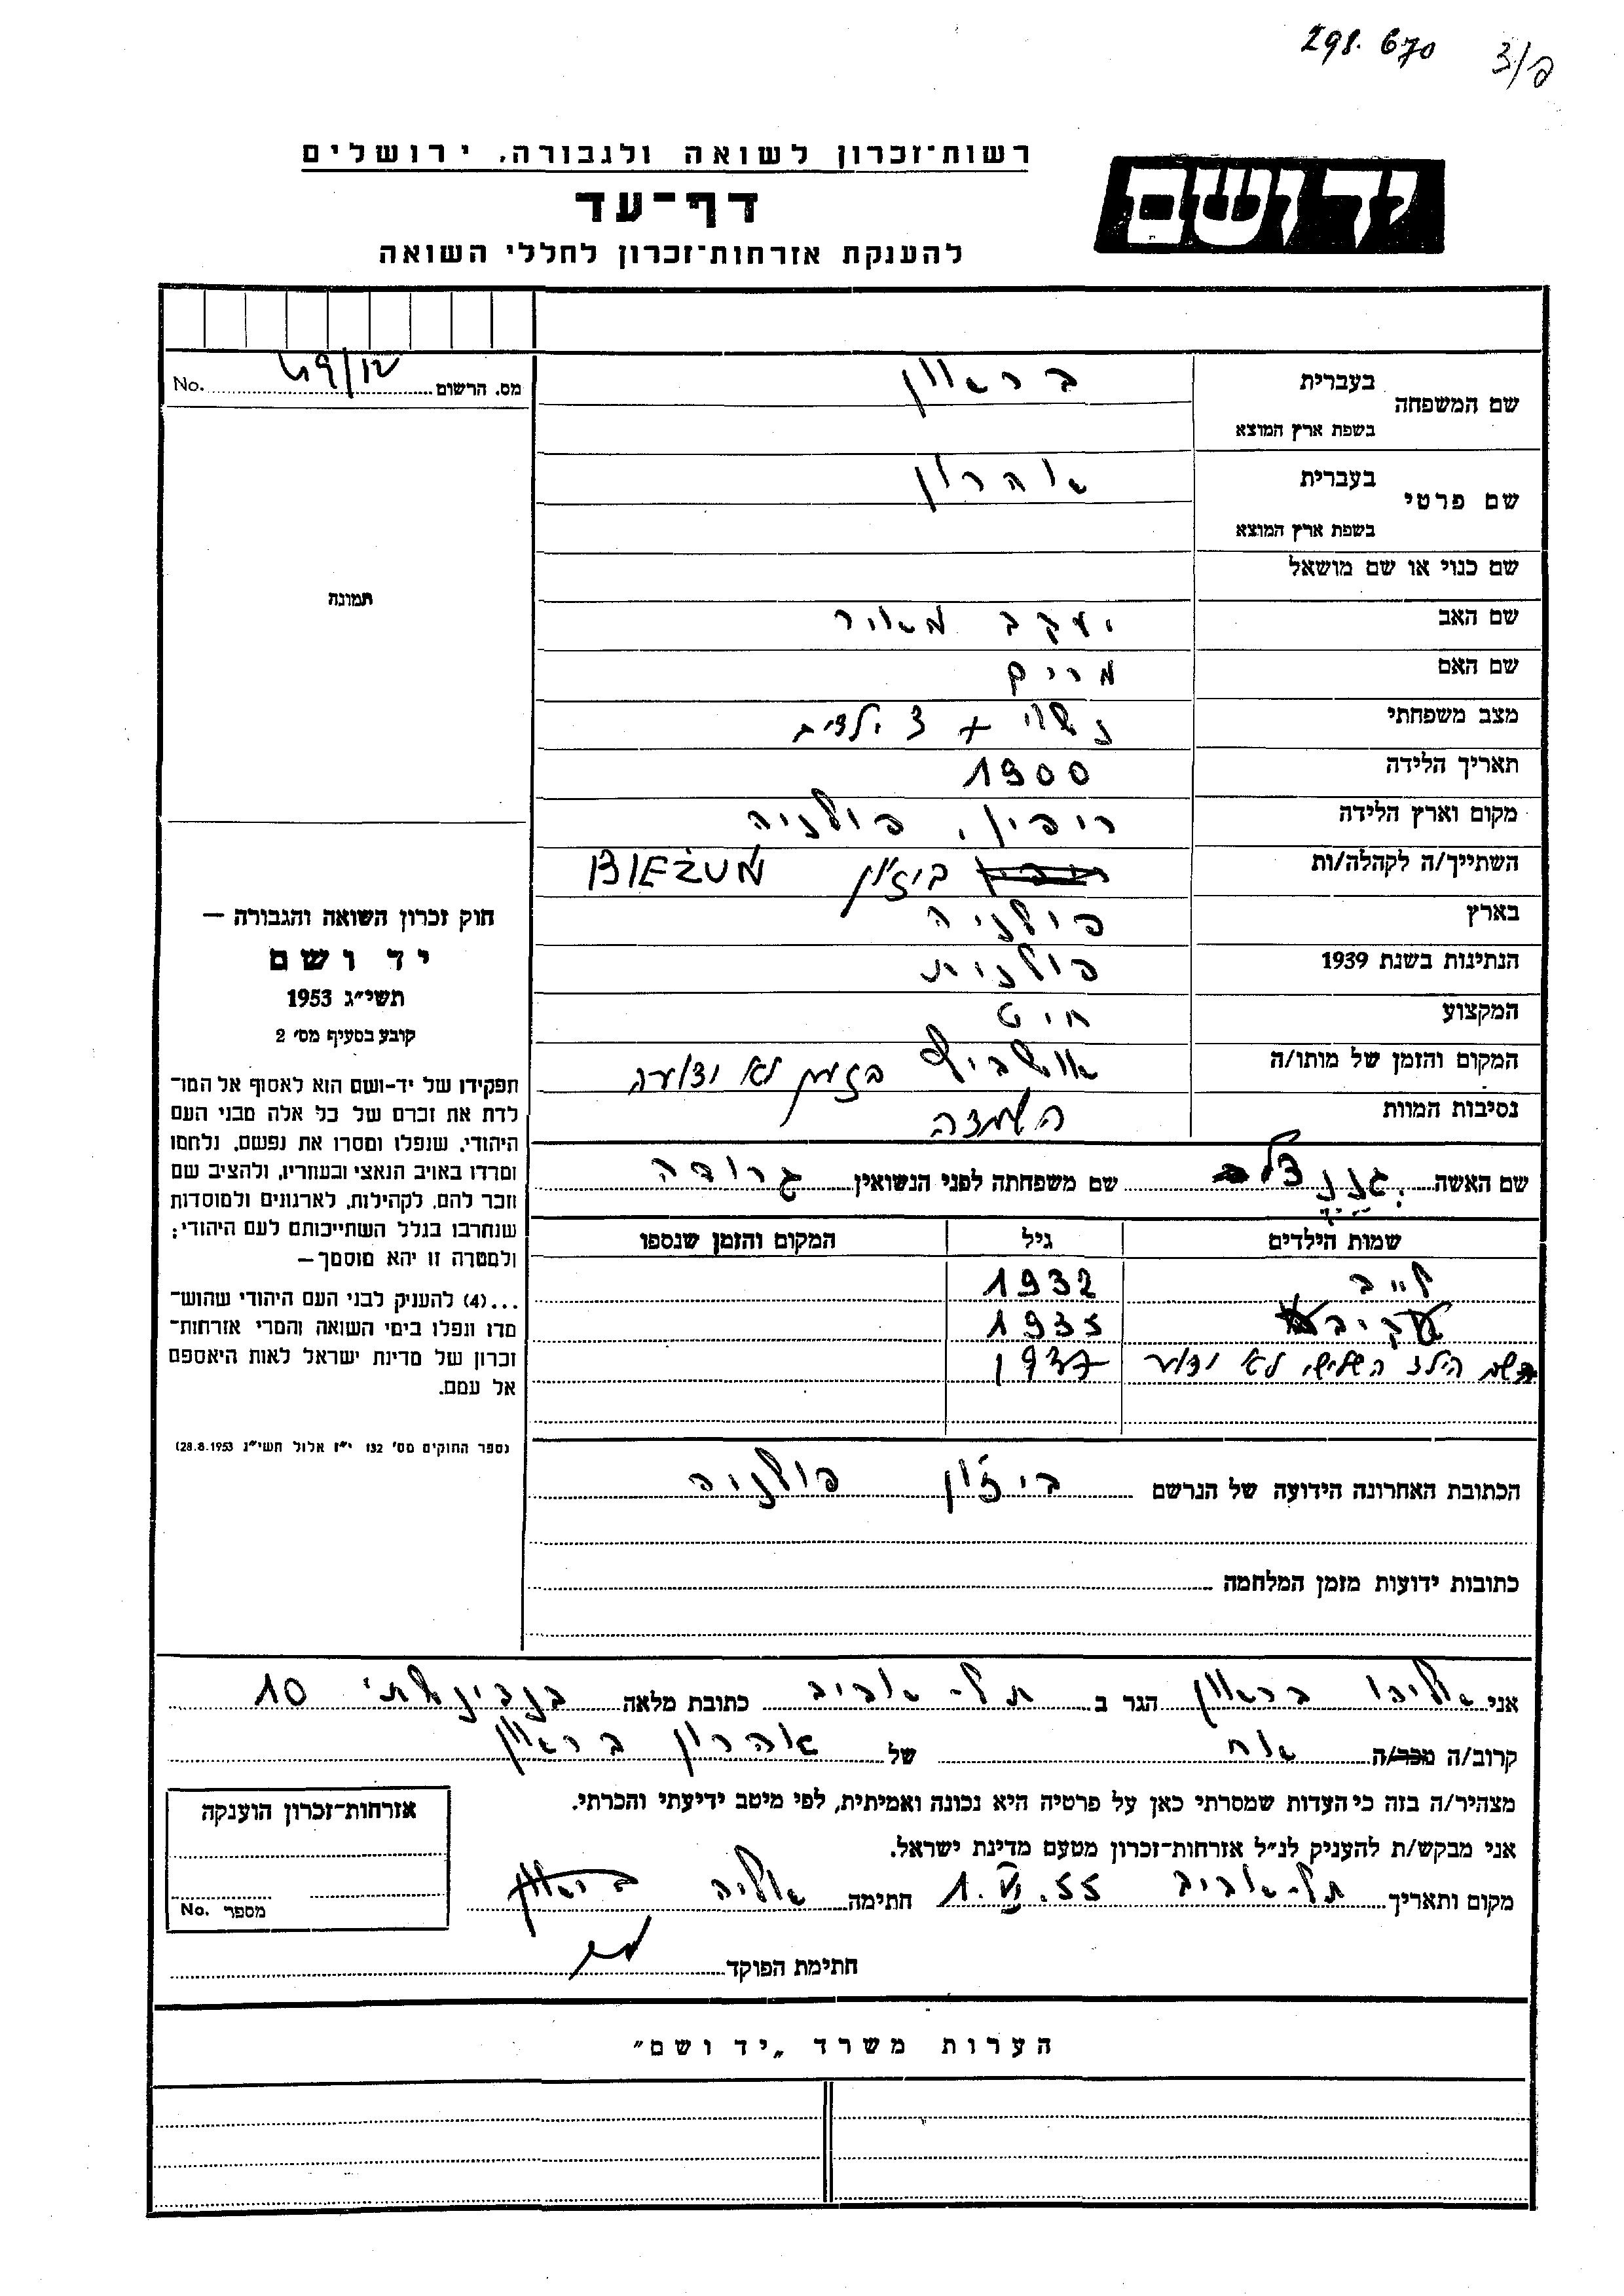 298.670 3/פ
רשות־זכרון לשואה ולגבורה, ירושלים
יד ושם
דף־עד
להענקת אזרחות־זכרון לחללי השואה
מס. הרשום No.
שם המשפחה בעברית בראון
בשפת ארץ המוצא
שם פרטי בעברית אהרון
בשפת ארץ המוצא
שם כנוי או שם מושאל
תמונה
שם האב יעקב מאיר
שם האם מרים
מצב משפחתי נשוי + 3 ילדים
תאריך הלידה 1900
מקום וארץ הלידה ריפין, פולניה
השתייך/ה לקהלה/ות ביז'ון BIEŻUM
בארץ פולניה
הנתינות בשנת 1939 פולנית
המקצוע חיט
המקום והזמן של מותו/ה אושביץ בזמן לא ידוע
נסיבות המוות השמדה
חוק זכרון השואה והגבורה —
יד ושם
תשי״ג 1953
קובע בסעיף מס׳ 2
תפקידו של יד-ושם הוא לאסוף אל המו־
לדת את זכרם של כל אלה מבני העם
היהודי, שנפלו ומסרו את נפשם, נלחמו
ומרדו באויב הנאצי ובעוזריו, ולהציב שם
וזכר להם, לקהילות, לארגונים ולמוסדות
שנחרבו בגלל השתייכותם לעם היהודי;
ולמטרה זו יהא מוסמך—
...(4) להעניק לבני העם היהודי שהוש־
מדו ונפלו בימי השואה והמרי אזרחות־
זכרון של מדינת ישראל לאות היאספם
אל עמם.
(ספר החוקים מס׳ 132 י״ז אלול תשי״ג 28.8.1953)
שם האשה שם משפחתה לפני הנשואין גרודה
שמות הילדים גיל המקום והזמן שנספו
לייב 1932
עקיבא 1935
שם הילד השלישי לא ידוע 1937
הכתובת האחרונה הידועה של הנרשם ביז'ון פולניה
כתובות ידועות מזמן המלחמה
אני אליהו בראון הגר ב תל-אביב כתובת מלאה 10
קרוב/ה מכר/ה אח של אהרון בראון
מצהיר/ה בזה כי העדות שמסרתי כאן על פרטיה היא נכונה ואמיתית, לפי מיטב ידיעתי והכרתי.
אני מבקש/ת להעניק לנ״ל אזרחות־זכרון מטעם מדינת ישראל.
מקום ותאריך תל-אביב 1.VI.55 חתימה אליהו בראון
חתימת הפוקד
אזרחות־זכרון הוענקה
מספר No.
הערות משרד „יד ושם״